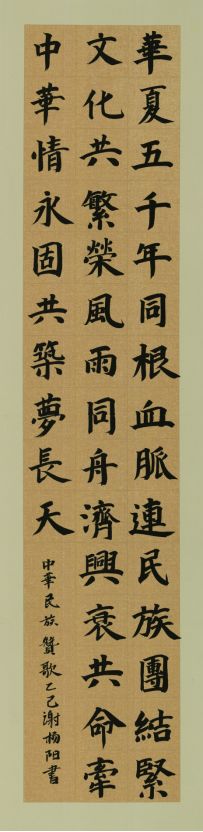 華夏五千年同根血脈連民族團結緊
文化共繁榮風雨同舟濟興衰共命牽
中華情永固共築夢長天
中華民族贊歌乙己謝楠阳書